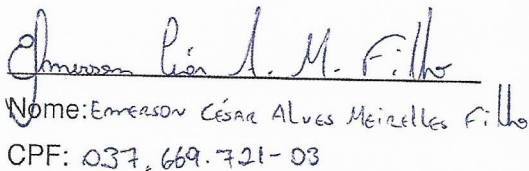 Emerson César A. M. Filho
Nome: Emerson César Alves Meirelles Filho
CPF: 037.669.721-03